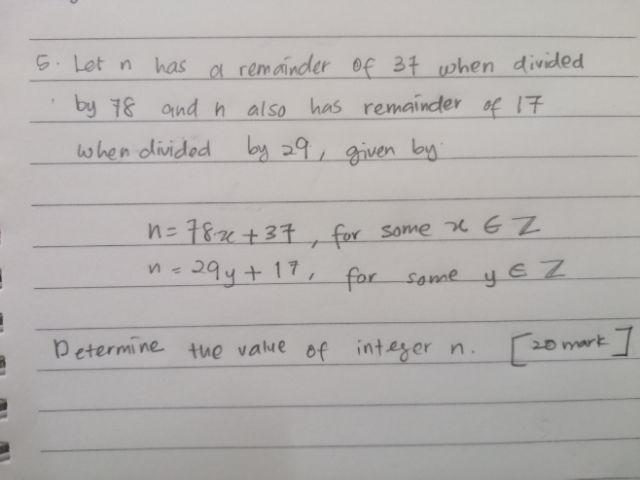 5. Let n has a remainder of 37 when divided
by 78 and n also has remainder of 17
when divided by 29, given by
n = 78x + 37, for some x ∈ Z
n = 29y + 17, for some y ∈ Z
Determine the value of integer n. [20 mark]